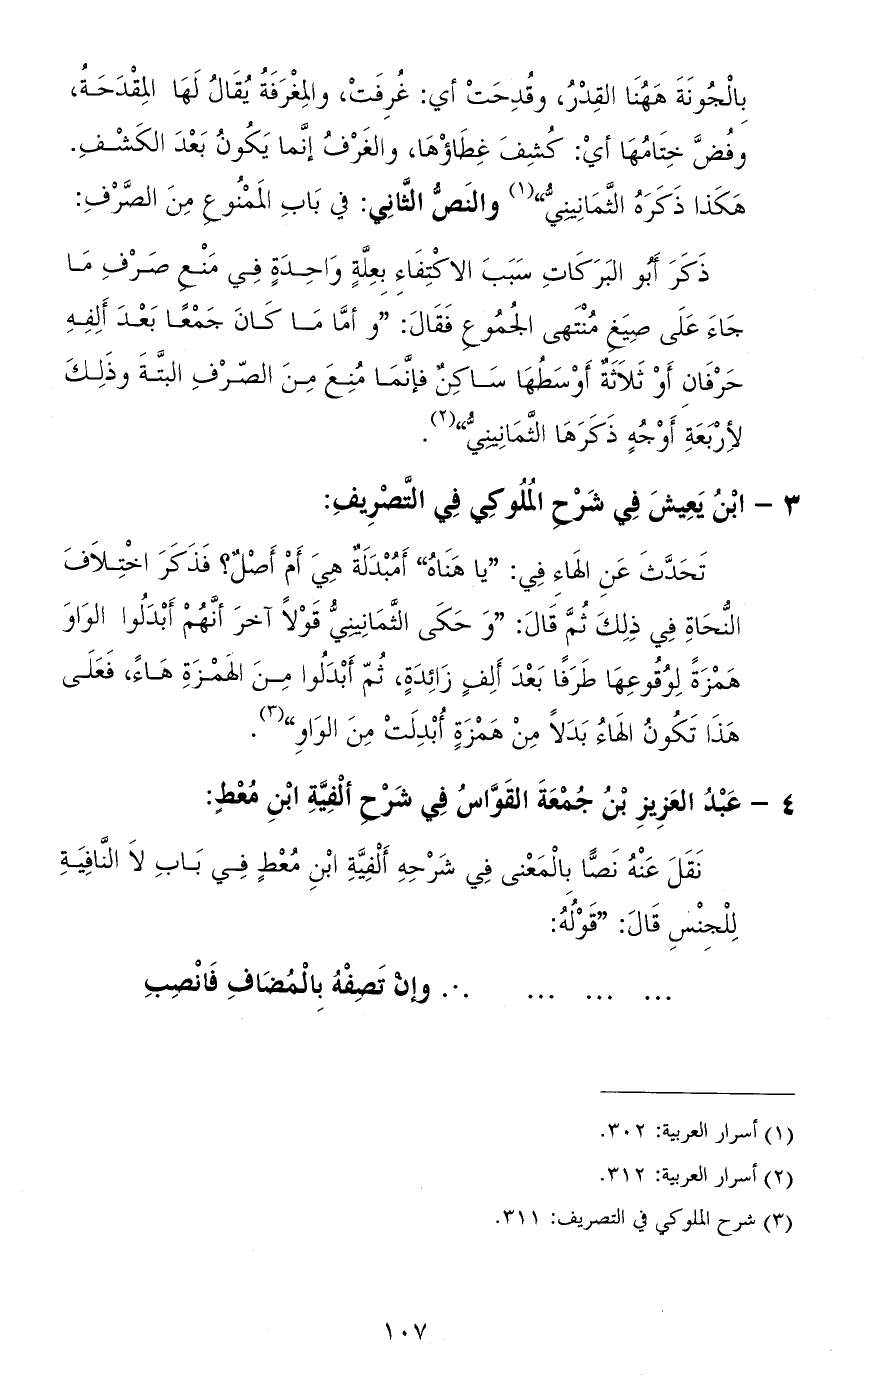 بِالْجُونَةَ هَهُنَا القِدْرُ، وقُدِحَتْ أي: غُرِفَتْ، والمِغْرَفَةُ يُقَالُ لَهَا المِقْدَحَةُ،
وفُضَّ خِتَامُهَا أيْ: كُشِفَ غِطَاؤْهَا، والغَرْفُ إنَّما يَكُونُ بَعْدَ الكَشْفِ.
هَكَذا ذَكَرَهُ الثَّمَانِينِيُّ“(١) والنَصُّ الثَّانِي: في بَابِ المَمْنُوعِ مِنَ الصَّرْفِ:
ذَكَرَ أَبُو البَرَكَاتِ سَبَبَ الاكْتِفَاءِ بِعِلَّةٍ وَاحِدَةٍ فِي مَنْعِ صَرْفِ مَا
جَاءَ عَلَى صِيَغِ مُنْتَهى الجُمُوعِ فَقَالَ: ”و أمَّا مَا كَانَ جَمْعًا بَعْدَ أَلِفِهِ
حَرْفَانِ أَوْ ثَلاَثَةٌ أَوْسَطُهَا سَاكِنٌ فإنَّمَا مُنِعَ مِنَ الصّرْفِ البَتَّةَ وذَلِكَ
لأِرْبَعَةِ أَوْجُهٍ ذَكَرَهَا الثَّمَانِينِيُّ“(٢).
٣ – ابْنُ يَعِيشَ فِي شَرْحِ المُلُوكِي فِي التَّصْرِيفِ:
تَحَدَّثَ عَنِ الهَاءِ فِي: ”يا هَنَاهُ“ أَمُبْدَلَةٌ هِيَ أَمْ أَصْلٌ؟ فَذَكَرَ اخْتِلاَفَ
النُّحَاةِ فِي ذِلِكَ ثُمَّ قَالَ: ”وَ حَكَى الثَّمَانِينِيُّ قَوْلاً آخرَ أَنَّهُمْ أَبْدَلُوا الوَاوَ
هَمْزَةً لِوُقُوعِهَا طَرَفًا بَعْدَ ألِفٍ زَائِدَةٍ، ثُمّ أَبْدَلُوا مِنَ الهَمْزَةِ هَاءً، فَعَلَى
هَذَا تَكُونُ الهَاءُ بَدَلاً مِنْ هَمْزَةٍ أُبْدِلَتْ مِنَ الوَاوِ“(٣).
٤ – عَبْدُ العَزِيزِ بْنُ جُمْعَةَ القَوَّاسُ فِي شَرْحِ ألْفِيَّةِ ابْنِ مُعْطٍ:
نَقَلَ عَنْهُ نَصًّا بِالْمَعْنى فِي شَرْحِهِ أَلْفِيَّةِ ابْنِ مُعْطٍ فِي بَابِ لاَ النَّافِيَةِ
لِلْجِنْسِ قَالَ: ”قَوْلُهُ:
... ... ... .·. وإنْ تَصِفْهُ بِالْمُضَافِ فَانْصِبِ
(١) أسرار العربية: ٣٠٢.
(٢) أسرار العربية: ٣١٢.
(٣) شرح الملوكي في التصريف: ٣١١.
١٠٧